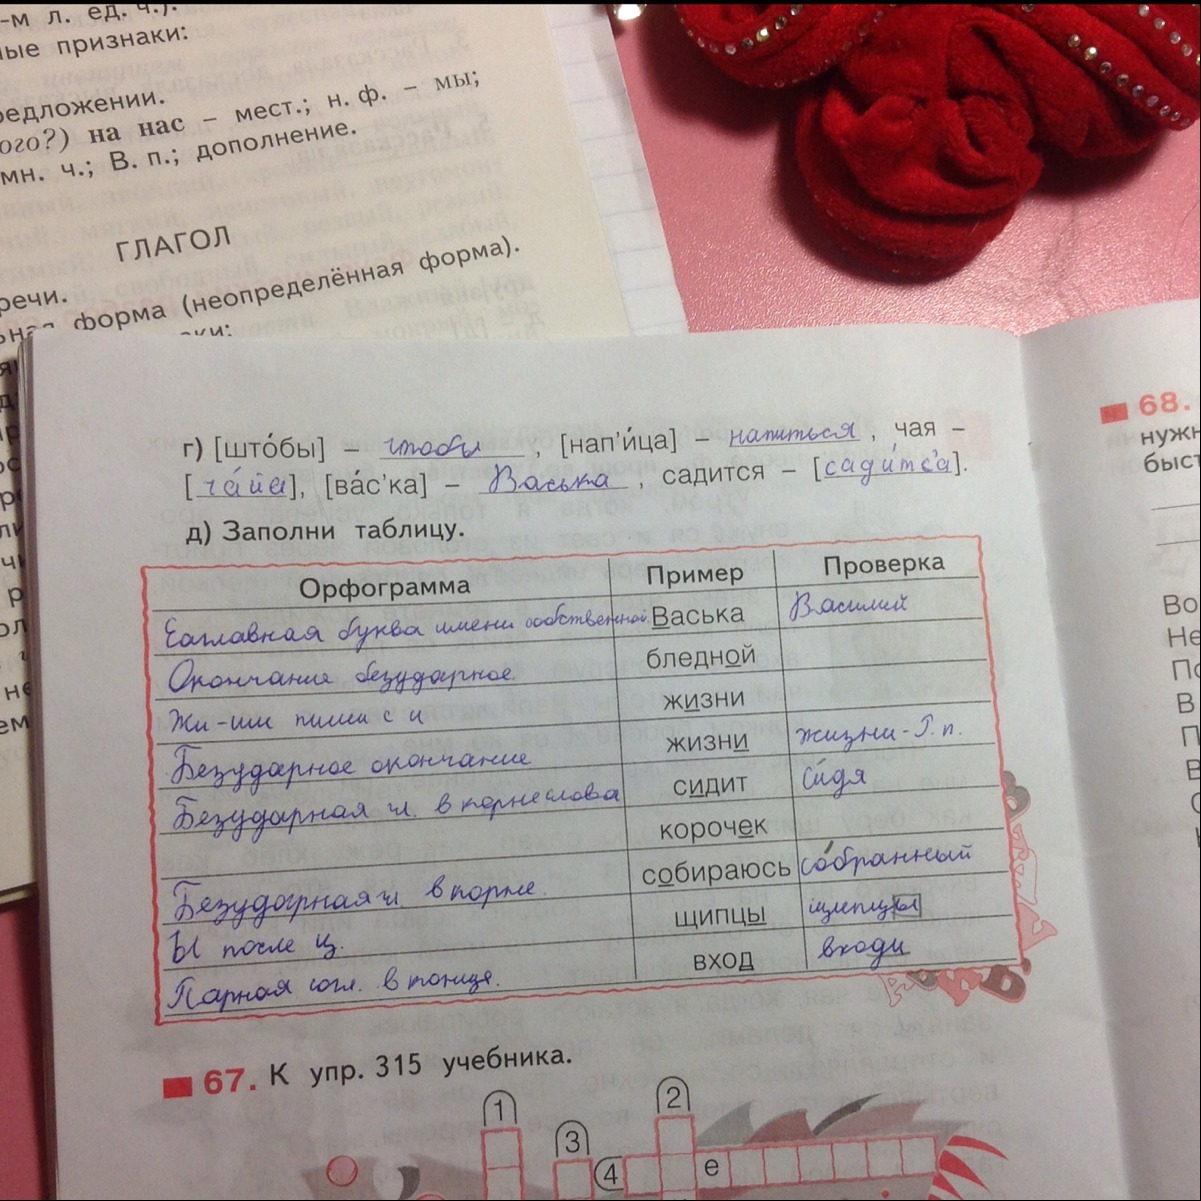 -м л. ед. ч.).
ные признаки:
редложении.
ого?) на нас – мест.; н. ф. – мы;
мн. ч.; В. п.; дополнение.
ГЛАГОЛ
речи.
форма (неопределённая форма).
г) [што́бы] – чтобы , [нап'и́ца] – напиться , чая –
[ ча́йа], [ва́с'ка] – Васька , садится – [сади́тса].
д) Заполни таблицу.
Орфограмма Пример Проверка
Заглавная буква имени собственной. Васька Василий
Окончание безударное. бледной
Жи-ши пиши с и жизни
Безударное окончание жизни жизни-Р.п.
Безударная гл. в корне слова сидит си́дя
корочек
Безударная гл. в корне. собираюсь со́бранный
Ы после ц. щипцы щипцы
Парная согл. в конце. вход входи
67. К упр. 315 учебника.
1
2
3
4 е
68.
нужн
быст
Во
Не
По
В
П
В